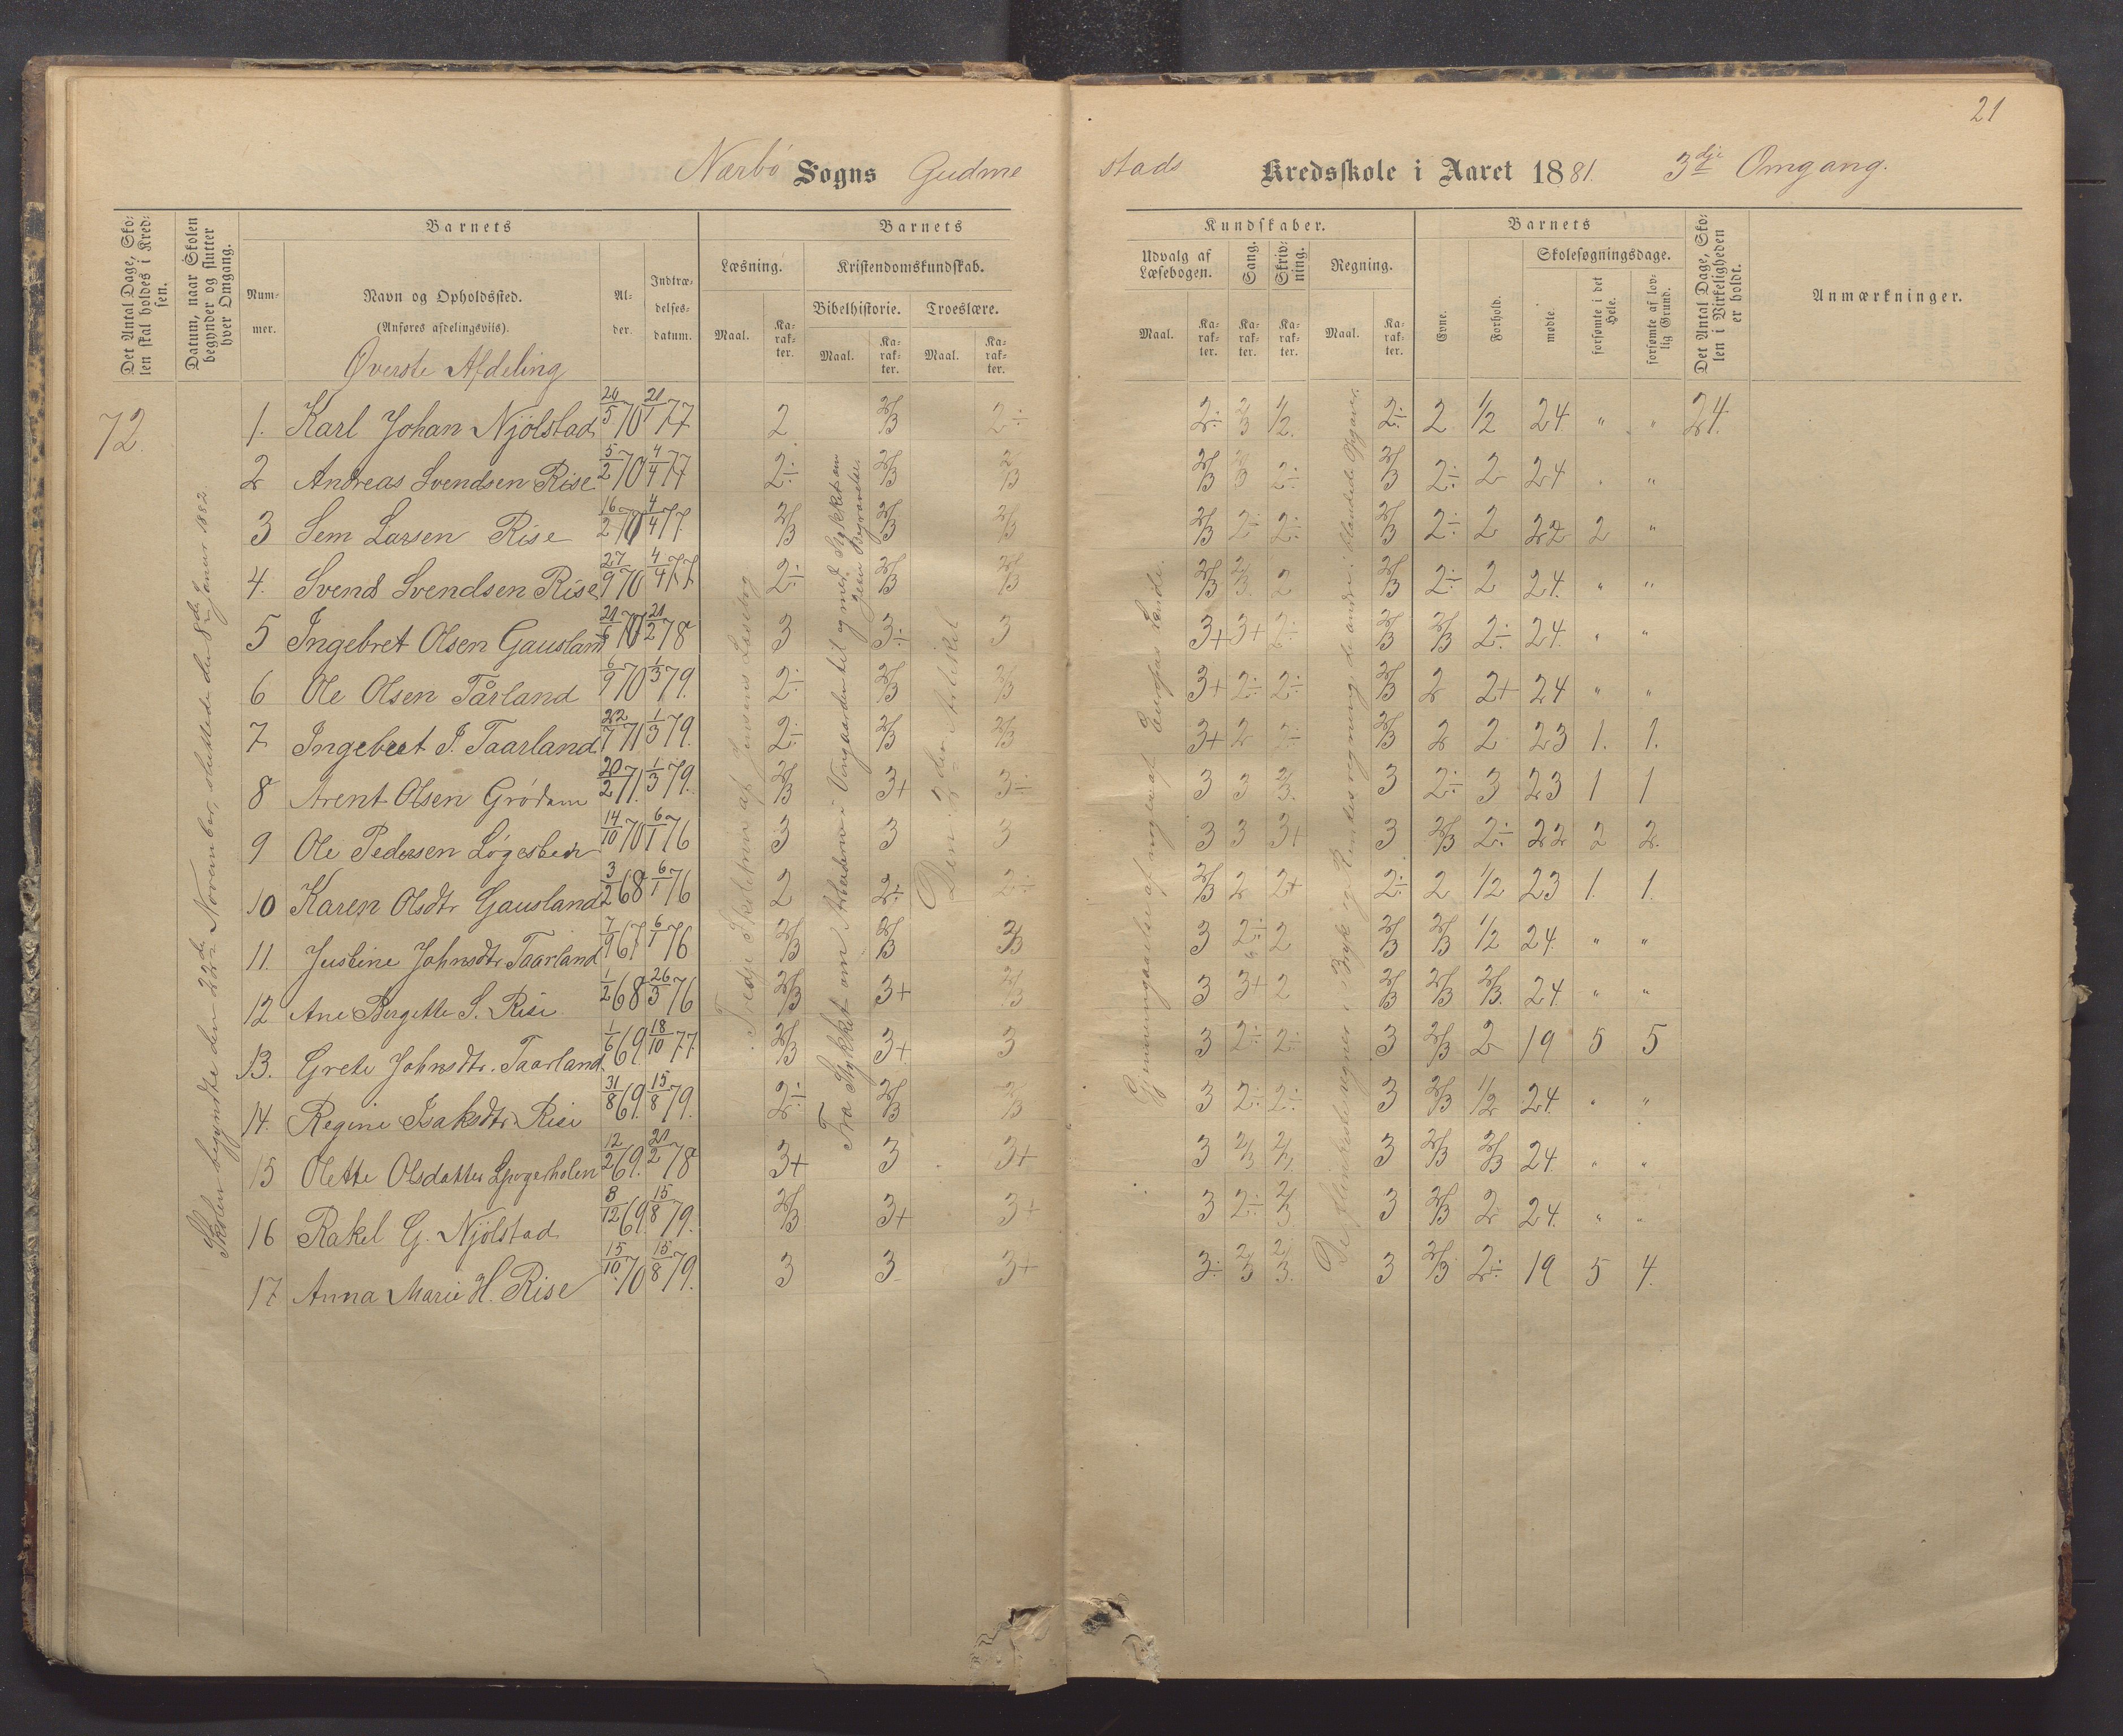 21
Nærbö Sogns Gudmestads Kredsskole i Aaret 1881. 3dje Omgang.
Det Antal Dage, Skolen skal holdes i Kredsen.
Datum, naar Skolen begynder og slutter hver Omgang.
Barnets
Nummer.
Navn og Opholdssted.
(Anføres afdelingsviis).
Alder.
Indtrædelsesdatum.
Barnets Kundskaber.
Læsning.
Maal.
Karakter.
Kristendomskundskab.
Bibelhistorie.
Maal.
Karakter.
Troeslære.
Maal.
Karakter.
Udvalg af Læsebogen.
Maal.
Karakter.
Sang.
Karakter.
Skrivning.
Karakter.
Regning.
Maal.
Karakter.
Barnets
Evne.
Forhold.
Skolesøgningsdage.
mødte.
forsømte i det Hele.
forsømte af lovlig Grund.
Det Antal Dage, Skolen i Virkeligheden er holdt.
Anmærkninger.
Øverste Afdeling
72.
Skolen begyndte den 22de November, sluttede den 8de Januar 1882.
Tredje Skoletrin af Jensens Læsebog
Fra Stykket om Arbeiderne i Vingaarden til og med Stykket om Jesu Begravelse.
Den 3die Artikel
Gjennemgaaelse af nogle af Europas Lande.
1. Karl Johan Njölstad 24/5 70 21/1 77 2 2/3 2÷ 2÷ 2/3 1/2. 2÷ 2 1/2 24 " " 24.
2 Andreas Svendsen Rise 5/2 70 4/4 77 2÷ 2/3 2/3 2/3 2/3 2÷ 2/3 2÷ 2 24 " "
3 Sem Larsen Rise 16/2 70 4/4 77 2/3 2/3 2/3 2/3 2÷ 2÷ 2/3 2÷ 2 22 2 "
4. Svend Svendsen Rise 27/9 70 4/4 77 2÷ 2/3 2/3 2/3 2/3 2 2/3 2÷ 2 24. " "
5 Ingebret Olsen Gausland 21/6 70 21/2 78 3 3÷ 3 3+ 3+ 2÷ 2/3 2/3 2÷ 24. " "
6 Ole Olsen Tårland 6/9 70 1/3 79. 2÷ 2/3 2/3 3+ 2÷ 2÷ 2/3 2 2+ 24 " "
7 Ingebret J. Taarland 22/7 71 1/3 79. 2÷ 2/3 2/3 3+ 2 2÷ 2/3 2 2 23 1. 1.
8 Arent Olsen Grödem 20/2 71. 1/3 79. 2/3 3+ 3÷ 3 3 2/3. 3 2÷ 3 23 1 1
9 Ole Pedersen 14/10 70 6/1 76 3 3 3 3 3 3+ 3 2/3 2÷ 22 2 2.
10 Karen Olsdtr Gausland 3/2 68 6/1 76 2 2÷ 2÷ 2/3 2 2+ 2÷ 2 1/2 23 1. 1.
11. Justine Johnsdtr Taarland 7/9 67 6/1 76 2/3 2/3 2/3 3 2÷ 2 2/3 2/3 1/2 24. " "
12 Ane Bergette S. Rise 1/2 68 26/3 76 2/3 3+ 2/3 3 3+ 2 2/3 2/3 2/3. 24. " "
13. Grete Johnsdtr. Taarland 1/6 69. 18/10 77. 2/3 3+ 3 3 2÷ 2÷ 3 2/3 2 19 5 5
14. Regine Isaksdtr Rise 31/8 69. 15/8 79. 2÷ 2/3 2/3 3 2÷ 2÷ 3 2/3 1/2 24. " "
15 Olette Olsdatter 12/2 69. 21/2 78 3+ 3 3+ 3 2/3 2/3. 3 2/3 2/3 24. " "
16 Rakel G. Njölstad 8/12 69. 15/8 79. 2/3 3+ 3+ 3 2÷ 2/3 3 2/3 2 24. " "
17 Anna Marie H. Rise 15/10 70 15/8 79. 3 3 3+ 3÷ 2/3 2/3. 3 2/3 2÷ 19 5 4.